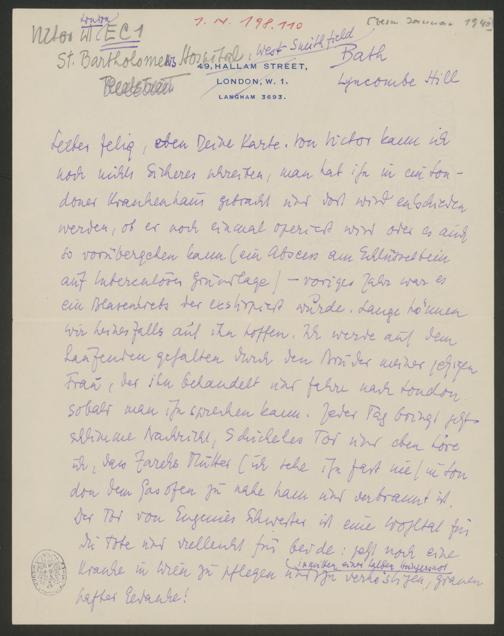 London
Victor W. EC1
1. N. 198.110
Januar 1940
St. Bartholomew's Hospital, West-Smithfield
49, HALLAM STREET,
Bath
LONDON, W. 1.
Lyncombe Hill
LANGHAM 3693.
Lieber Felix, eben Deine Karte. Von Victor kann ich
noch nichts Sicheres schreiben, man hat ihn in ein Lon-
doner Krankenhaus gebracht und dort wird entschieden
werden, ob er noch einmal operiert wird oder es auch
so vorübergehen kann (ein Abscess am Schlüsselbein
auf tuberculöser Grundlage) – voriges Jahr war es
ein Blasenkrebs der exstirpiert wurde. Lange können
wir keinesfalls auf ihn hoffen. Ich werde auf dem
Laufenden gehalten durch den Bruder meiner jetzigen
Frau, der ihn behandelt und fahre nach London
sobald man ihn sprechen kann. Jeder Tag bringt jetzt
schlimme Nachricht, Schickeles Tod und eben höre
ich, dass Zareks Mutter (ich sehe ihn fast nie) in Lon
don dem Gasofen zu nahe kam und verbrannt ist.
Der Tod von Eugenies Schwester ist eine Wohltat für
die Tote und vielleicht für beide: jetzt noch eine
Kranke in Wien zu pflegen und zu verköstigen, grauen
hafter Gedanke!